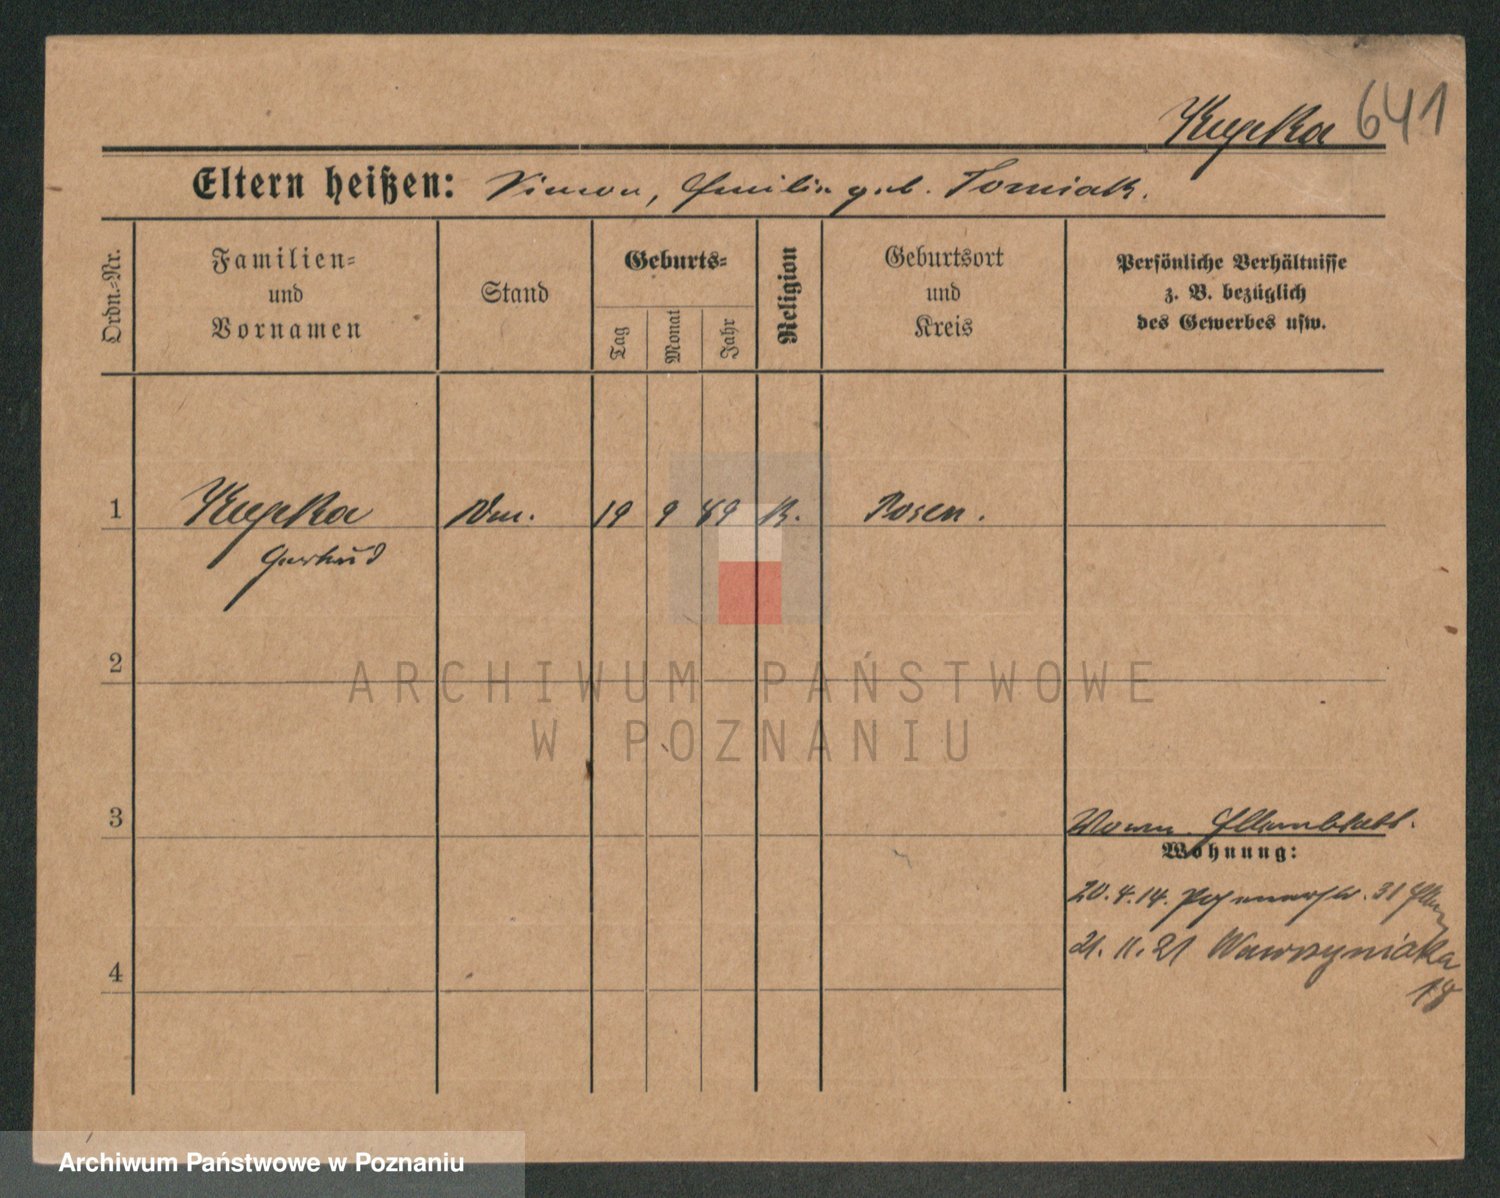 Kupka 641
Eltern heißen: Simon, Emilie geb. Tomiak.
Ordn.-Nr.
Familien-
und
Vornamen
Stand
Geburts-
Tag
Monat
Jahr
Religion
Geburtsort
und
Kreis
Persönliche Verhältnisse
z. B. bezüglich
des Gewerbes usw.
1 Kupka 19 9 89 K. Posen.
Gertrud
2
ARCHIWUM PAŃSTWOWE
W POZNANIU
3
Elternblatt.
Wohnung:
20.4.14. Posenerstr. 31
21.11.21 Wawrzyniaka
18
4
Archiwum Państwowe w Poznaniu